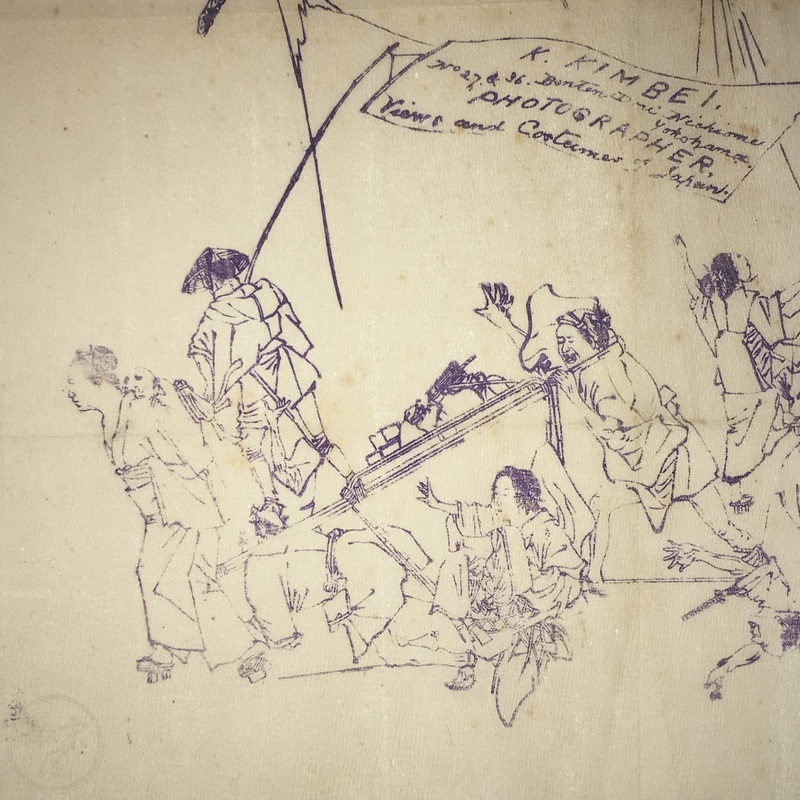 K. KIMBEI,
No 27 & 36. Benten Dori Nichiome
Yokohama.
PHOTOGRAPHER.
Views and Costumes of Japan.